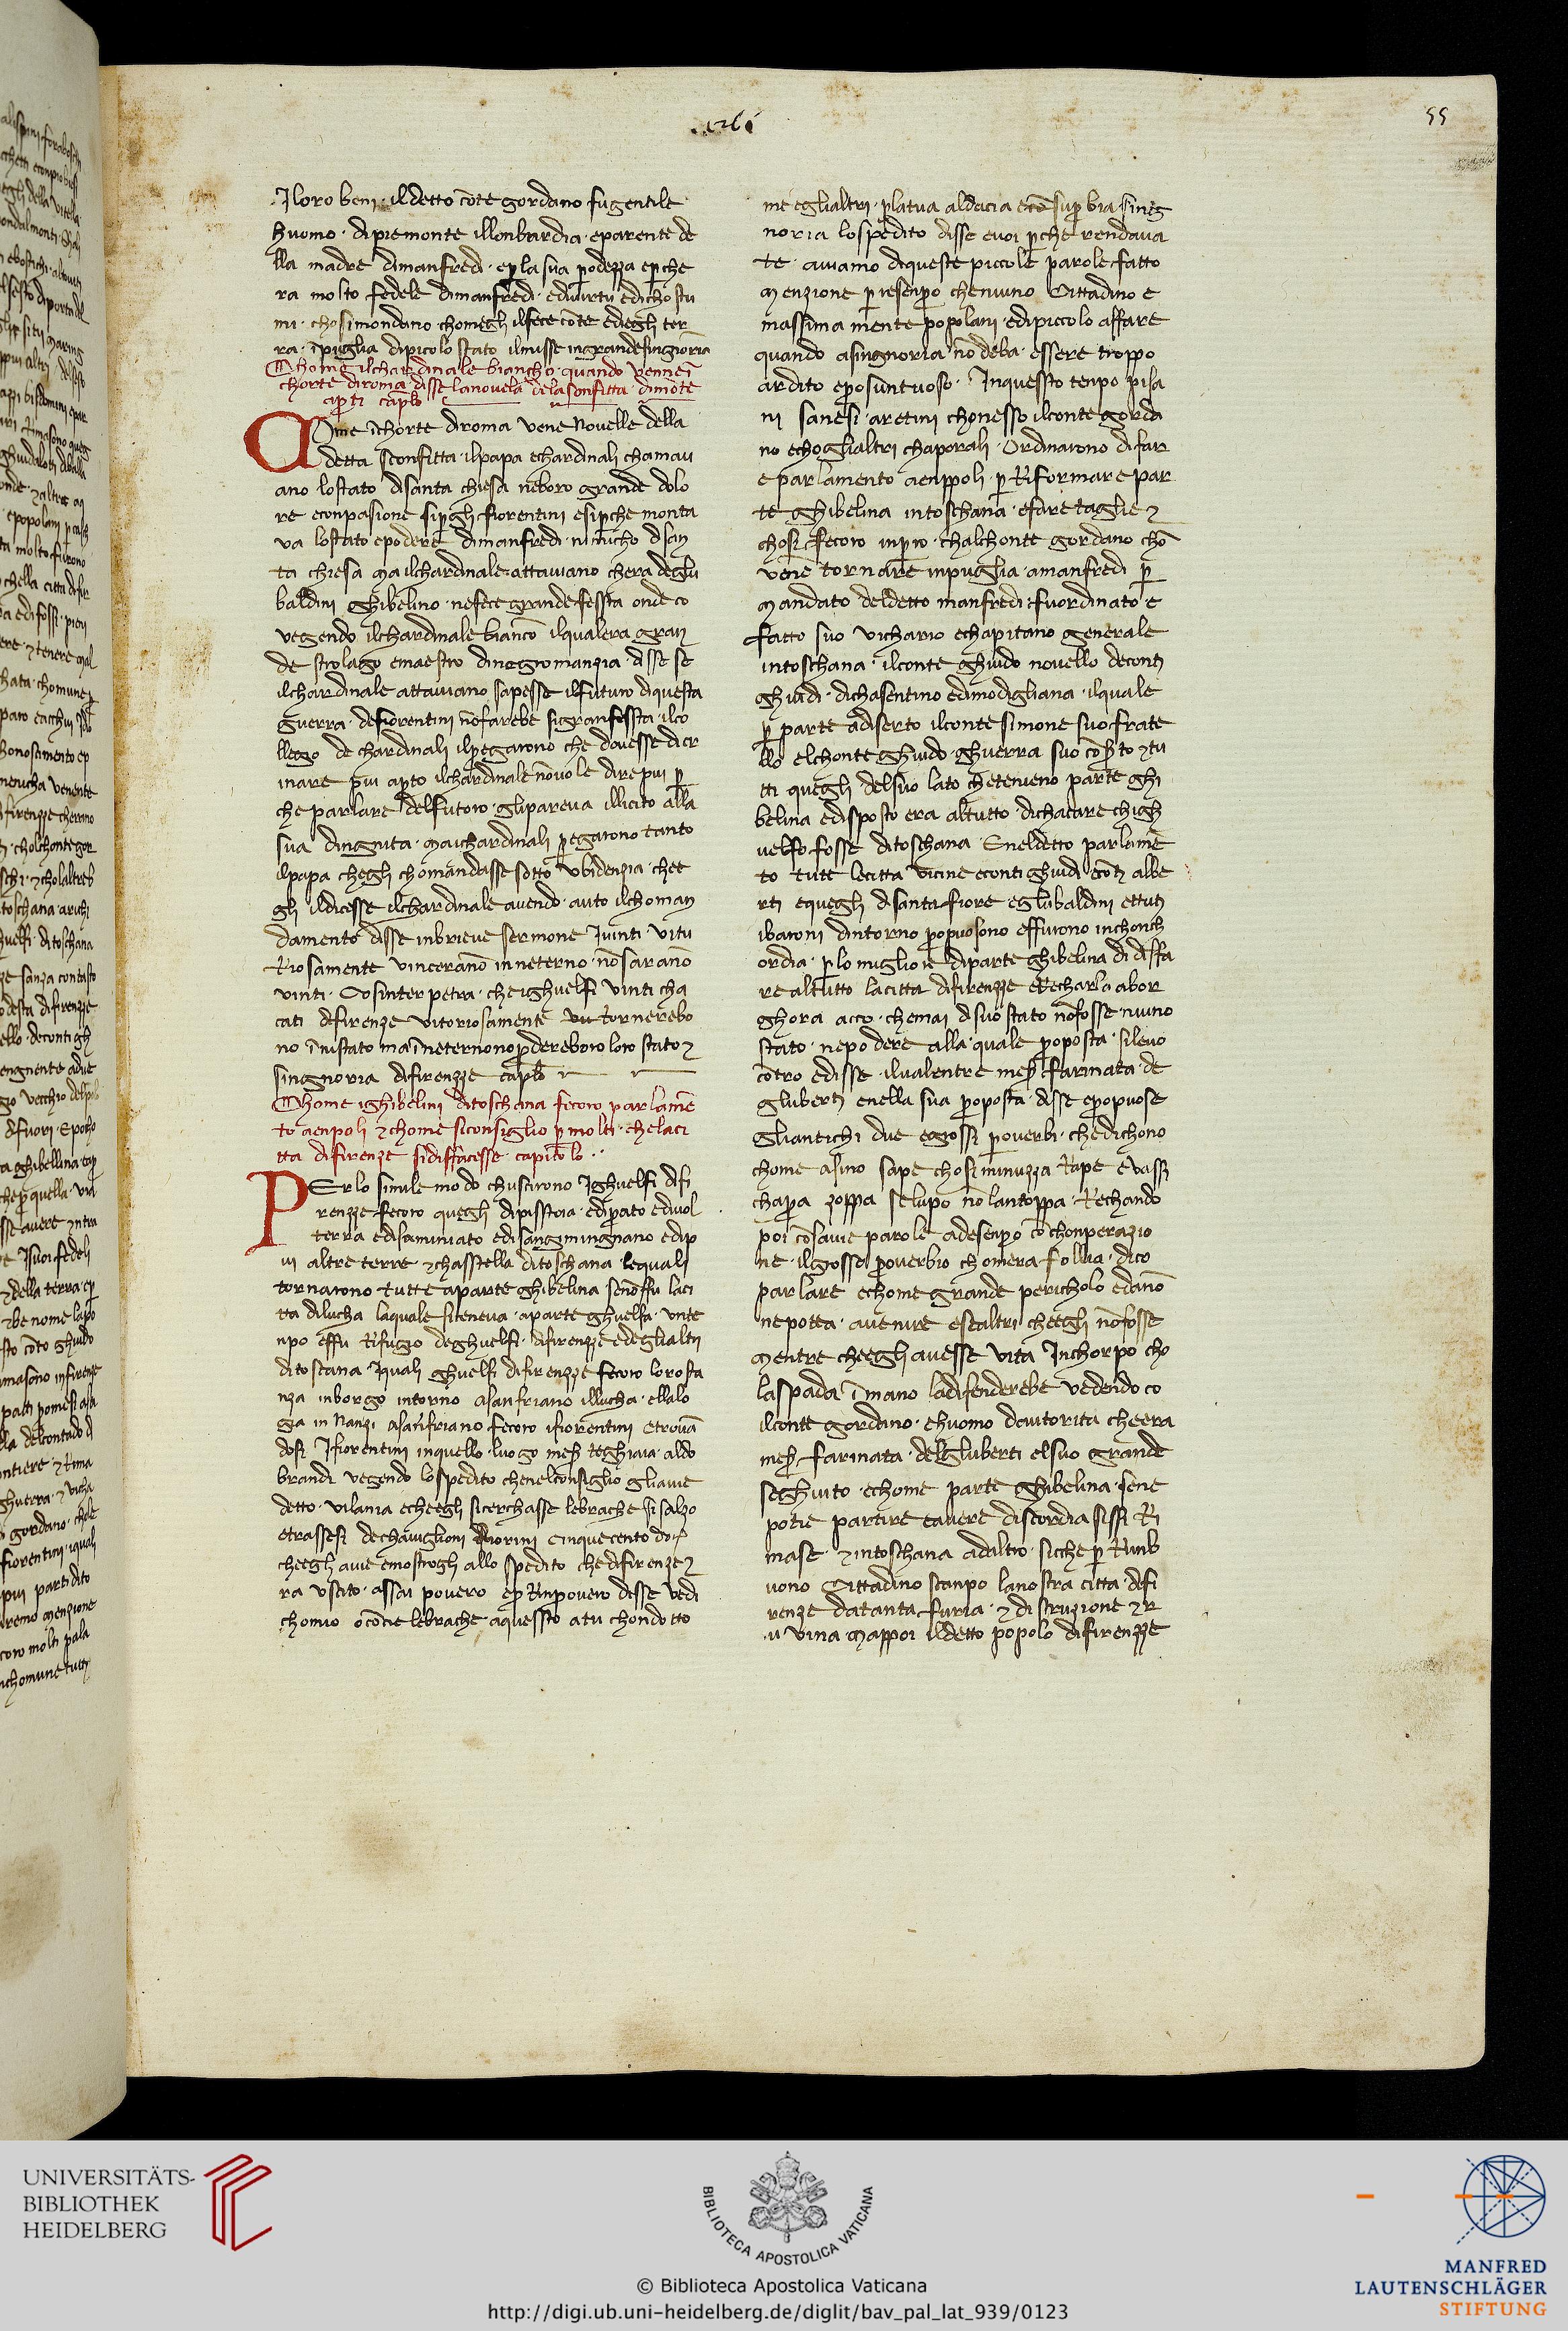 1261
55
I loro beni · il detto cōte gordano fu gentile
huomo · di piemonte illonbardia · e parente de
lla madre dimanfredi · e p̱ la sua p̱odezza e p̱che
ra molto fedele dimanfredi · ediuirtu edichostu
mi · chosimondano chomegli ilfece cōte ediegli ter
ra · ī puglia dipicolo stato ilmisse ingrandesingnioria
Chome ilchardinale biancho · quando venne ī
chorte diroma disse lanovela dela sconfitta · dimōte
ap̱ti cap̱lo
Come īchorte diroma vene novelle della
detta sconfitta · ilpapa echardinali chamau
ano lostato disanta chiesa neboro grande dolo
re econpasione sip̱gli fiorentini e sip̱che monta
va lostato epodere dimanfredi nimicho disan
ta chiesa ma ilchardinale attaviano chera degliu
baldini ghibelino · nefece grande fessta onde co
vegendo ilchardinale biancō ilqualera gran
de strolago emaestro dinegromanzia · disse se
ilchardinale attaviano sapesse ilfuturo diquesta
guerra · de fiorentini nō farebe sigran fessta · ilco
llego de chardinali ilp̱egarono che dovesse dicr
inare piu ap̱to ilchardinale nō vole dire piu p̱
che parlare delfuturo · glipareva illicito alla
sua dingnita · ma ichardinali p̱egarono tanto
ilpapa chegli chomandasse sotto ubidenzia · chee
gli ildicesse ilchardinale avendo · auto ilchoman
damento disse inbrieve sermone Ivinti · vitu
Riosamente vinceranō inneterno · nō saranō
vinti · Cosinterpetra · cheighuelfi vinti cha
cati difirenze vitoriosamente vi tornerebo
no ī nistato ma īneternono p̱dereboro loro stato ⁊
singnoria difirenzze cap̱lo
Chome ighibelini ditoschana fecoro parlamē
to aenpoli ⁊ chome siconsiglio p̱ molti · chelaci
tta difirenze sidisfacesse · capitolo · ·
PErlo simile modo chuscirono Ighuelfi difi
renzze fecoro quegli dipisstoia · edip̱ato edivol
terra edisaminiato edisangimingnano edip
iu altre terre ⁊ chasstella ditoschana lequali
tornarono tutte aparte ghibelina senō fu laci
tta dilucha laquale siteneva · aparte ghuelfa · unte
npo effu Rifugio deghuelfi · difirenzze edeglialtri
ditoscana Iquali ghuelfi difirenzze fecoro loro sta
nza inborgo intorno asanfriano illucha · ellalo
ga in nanzi asanfriano fecoro ifiorentini etrovā
dosi Ifiorentini inquello luogo mes̱ teghiaia · aldo
brandi vegendo lospedito chenelconsiglio gliavie
detto · vilania echeegli sicerchasse lebrache sisalzo
etrassesi dechaviglioni fiorini cinquecento doro
cheegli avie emostrogli allo spedito che difirenze ⁊
ra uscito · assai povero e p̱ Rinpovero disse vedi
chomio o cōcie lebrache · aquessto atu chondotto
me eglialtri · p̱ latua aldacia ecō sup̱bia · sing
noria lospedito disse evoi p̱che rendava
te · aviamo diqueste piccole parole fatto
menzione p̱ riesenp̱o cheniuno Cittadino e
massima mente popolani · edipiccolo affare
quando asingnoria nō deba · essere troppo
ardito ep̱osuntuoso · Inquessto tenpo pisa
ni sanesi · aretini chonesso ilconte gorda
no echoglialtri chaporali · Ordinarono difar
e parlamento aenppoli · p̱ Riformare par
te ghibelina intoschana · efare taglie ⁊
chosi fecoro inp̱o · chalchonte gordano chō
venē tornare inpuglia · amanfredi p̱
mandato deldetto manfredi · fuordinato e
fatto suo vichario echapitano generale
intoschana · ilconte ghuido novello deconti
ghuidi · dichasentino edimodigliana · ilquale
p̱ parte adiserto ilconte simone suo frate
llo elchonte ghuido ghuerra suo cōs̱to ⁊ tu
tti quegli delsuo lato chetenieno parte ghi
belina edisposto era altutto · dichacare chigh
uelfo fosse ditoschana · Eneldetto parlamē
to tutte lecitta vicine econti ghuidi ecōti albe
rti equegli disanta fiore eglubaldini ettuti
ibaroni dintorno p̱opuosono effurono inchonch
ordia · p̱ lo migliore diparte ghibelina di disfa
re altutto lacitta difirenzze erecharla abor
ghora acco · chemai disuo stato nō fosse niuno
stato · nepodere alla quale p̱oposta · silevo
cōtro edisse · ilvalentre mes̱ farinata · de
gluberti enella sua p̱oposta · disse ep̱opuose
gliantichi due egrossi p̱overbi · chedichono
chome asino sape chosi minuzza Rape evassi
chap̱a zoppa selupo nō lantoppa · Rechando
poi cōsavie parole adesenpo cōchonperazio
ne · ilgosso p̱overbio chomera follia · dico
parlare echome grande pericholo edanō
nepotea · avenire esealtri cheegli nō fosse
mentre cheegli avesse vita Inchorpo cho
laspada ī mano ladifenderebe vedendo co
ilconte gordano · ehuomo davtorita cheera
mes̱ farinata · degluberti elsuo grande
seghuito · echome parte ghibelina · sene
potie partire eavere discordia sissi Ri
mase · ⁊ intoschana adaltro · sicche p̱ Ruib
uono Cittadino scanpo lanostra citta · difi
renze datanta furia · ⁊ distruzione ⁊ r
uvina mappoi ildetto popolo difirenzze
UNIVERSITÄTS-
BIBLIOTHEK
HEIDELBERG
BIBLIOTECA APOSTOLICA VATICANA
© Biblioteca Apostolica Vaticana
http://digi.ub.uni-heidelberg.de/diglit/bav_pal_lat_939/0123
MANFRED
LAUTENSCHLÄGER
STIFTUNG